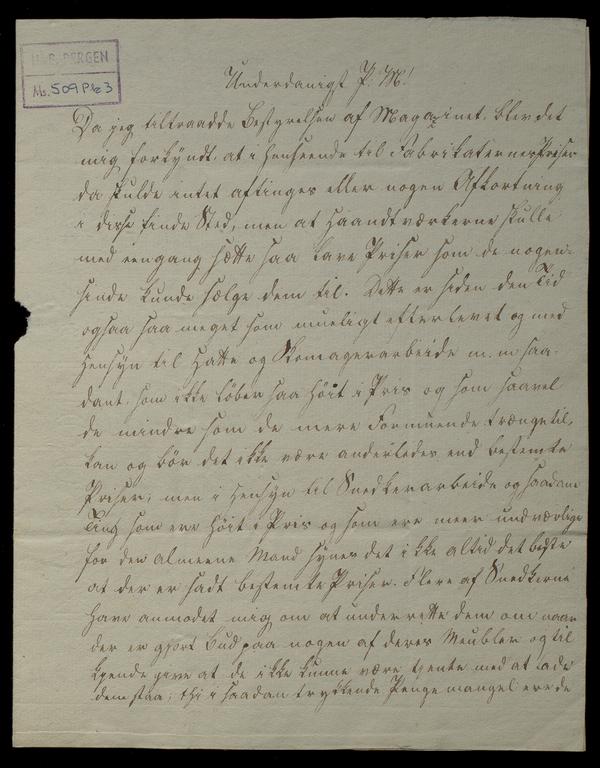 U. B. BERGEN
Ms. 509 Pk 3
Underdanigst P. M!
Da jeg tiltraadde Bestyrelsen af Magazinet, blev det
mig forkyndt, at i Henseende til Fabrikaternes Priser
da skulde intet aftinges eller nogen Afkortning
i disse finde Sted, men at Haandtværkerne skulle
med eengang sætte saa lave Priser som de nogen-
sinde kunde sælge dem til. Dette er siden den Tid
ogsaa saa meget som mueligt efterlevet og med
Hensyn til Hatte og Skomagerarbeide m. m. saa-
dant, som ikke løber saa høit i Pris og som saavel
de mindre som de mere Formuende trænge til,
kan og bør det ikke være anderledes end bestemte
Priser; men i Hensyn til Snedkerarbeide og saadane
Ting som ere høit i Pris og som ere meer undværlige
for den almeene Mand synes det ikke altid det beste
at der er sadt bestemte Priser. Flere af Snedkerne
have anmodet mig om at underrette dem om naar
der er gjort Bud paa nogen af deres Meubler og til
kjende give at de ikke kunne være tjente med at lade
dem staa; thi i saadan trykkende Penge mangel ere de